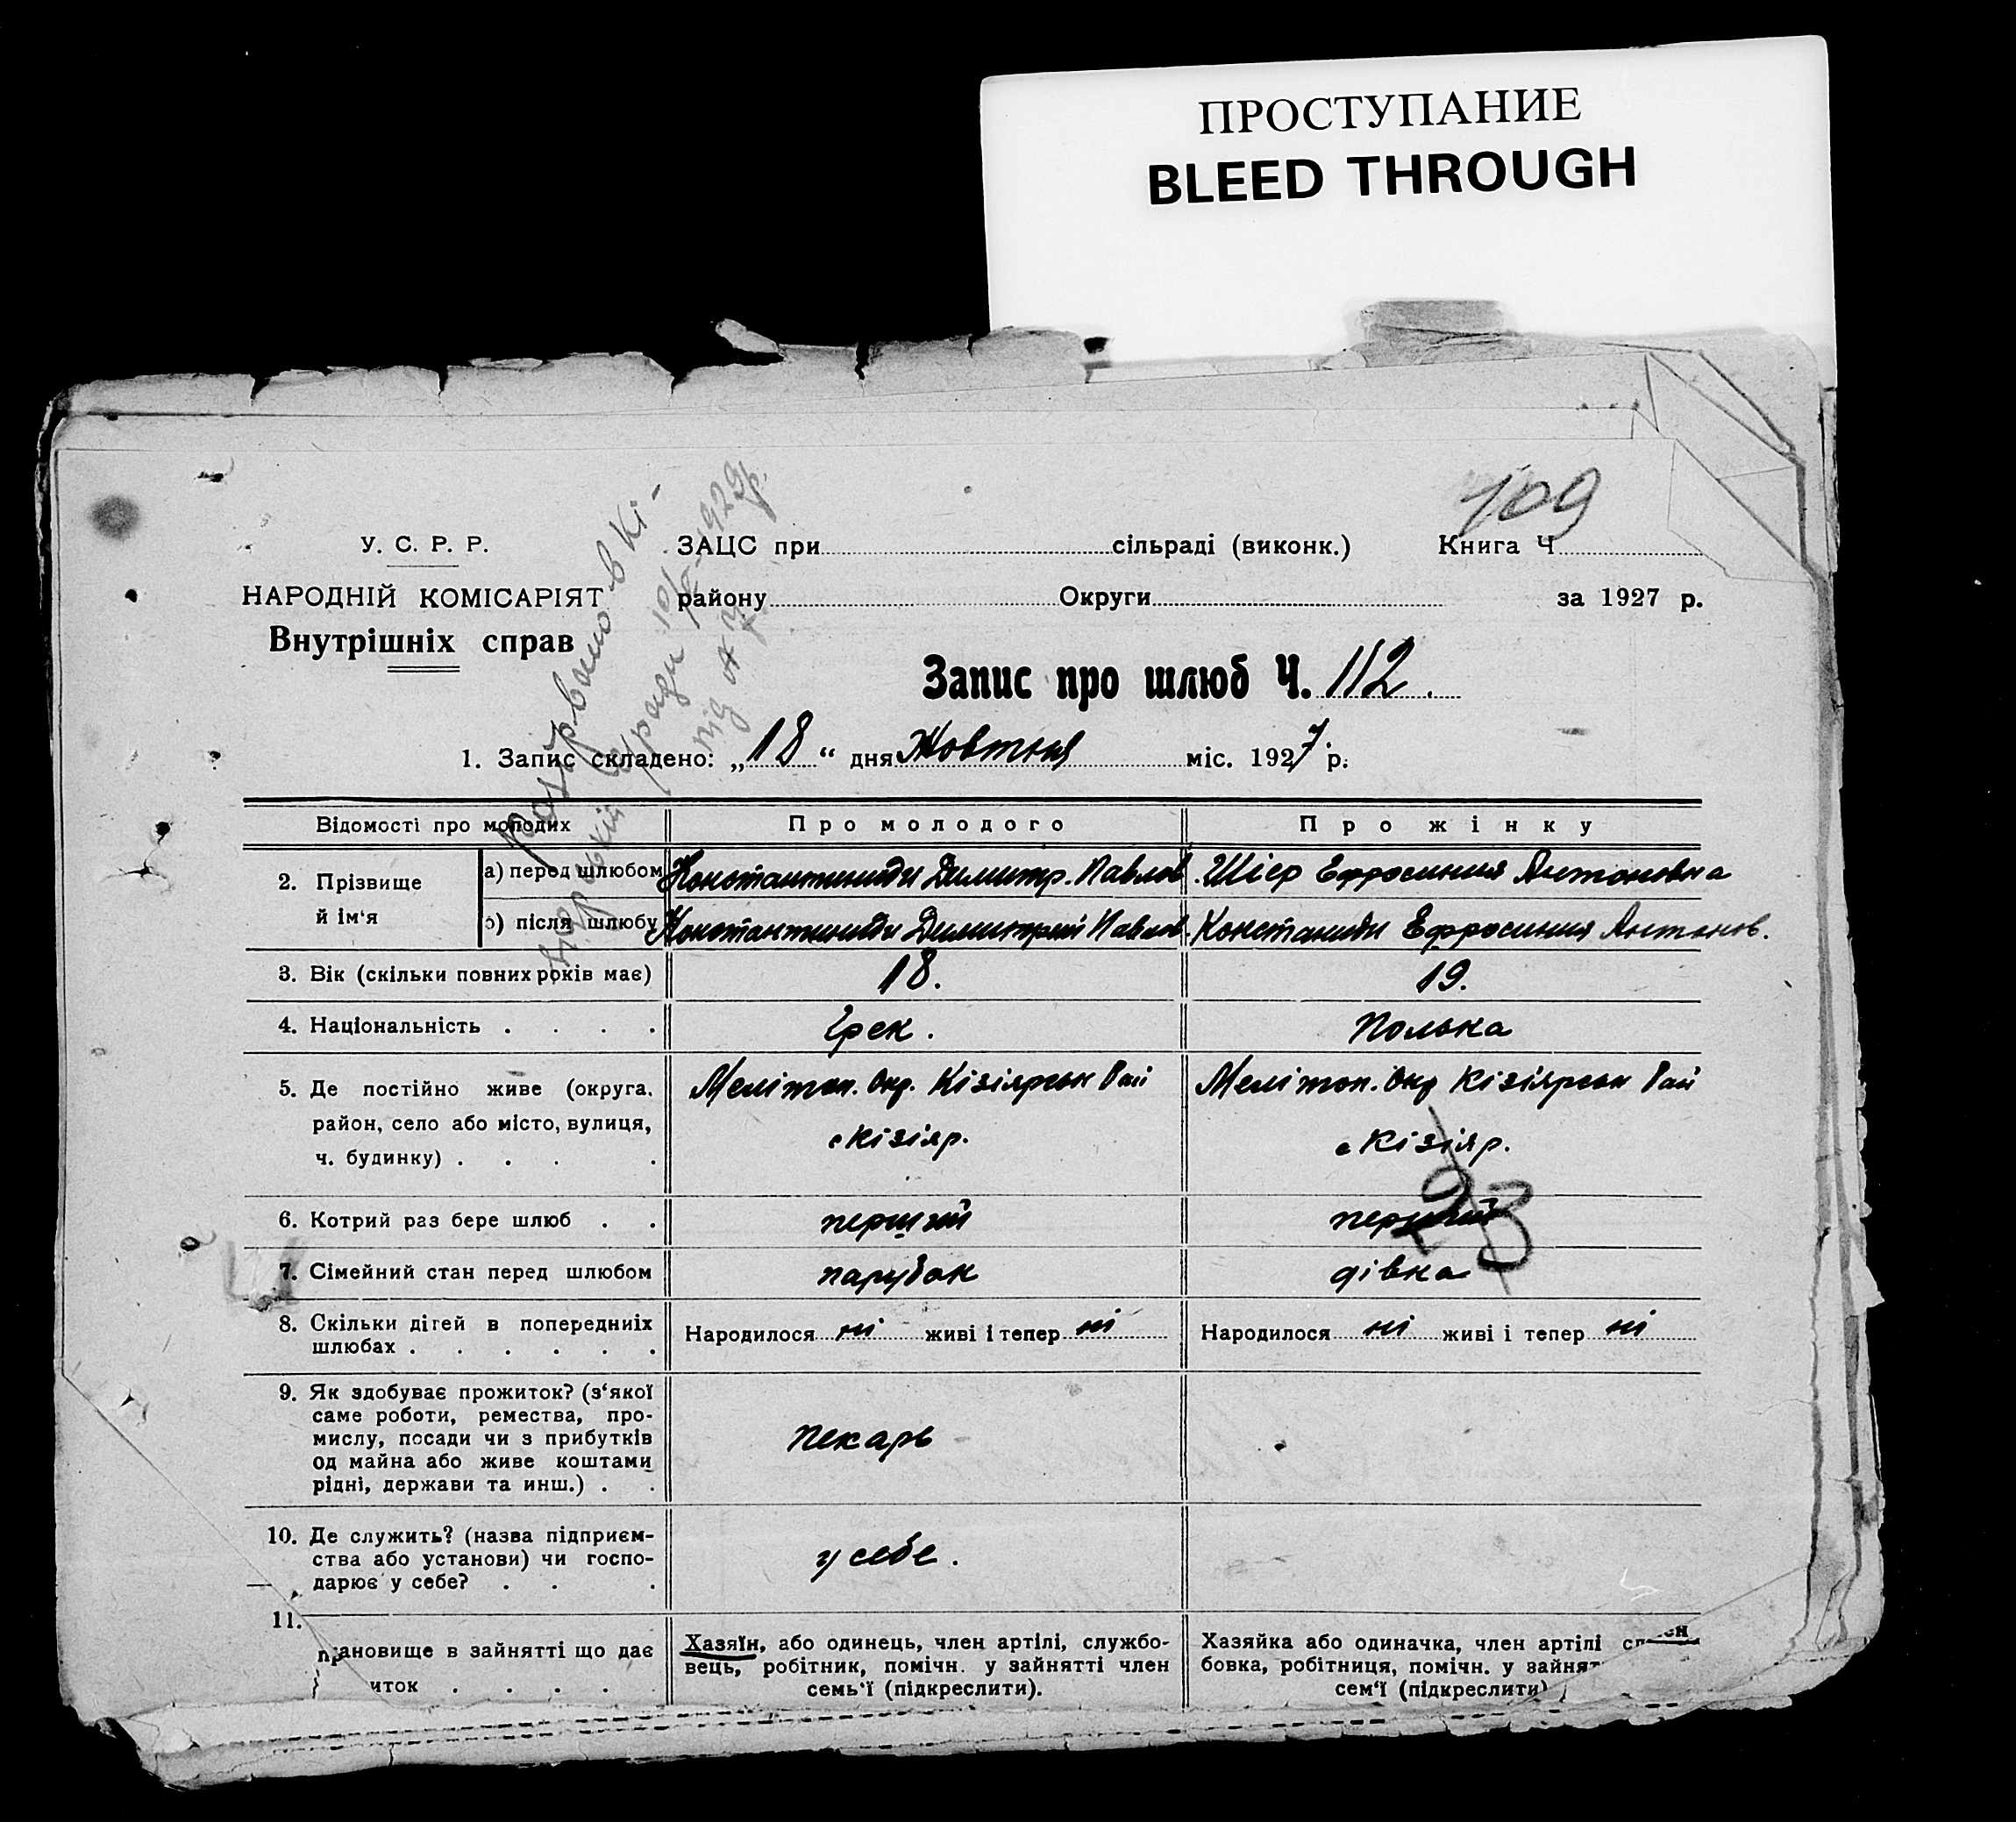 ПРОСТУПАНИЕ
BLEED THROUGH
109
У. С. Р. Р.
НАРОДНІЙ КОМІСАРІЯТ
Внутрішніх справ
ЗАЦС при сільраді (виконк.) Книга Ч
району Округи за 1927 р.
Розірвано в Кі-
сраді 10/ 1929р.
під № 7
Запис про шлюб Ч. 112.
1. Запис складено: „18“ дня Жовтня міс. 1927 р.
Відомості про молодих Про молодого Про жінку
2. Прізвище й ім‘я
а) перед шлюбом Константиниди Димитр. Павлов. Шіер Ефросиния Антоновна
б) після шлюбу Константиниди Димитрий Павлов. Констаниди Ефросиния Антонов.
3. Вік (скільки повних років має) 18. 19.
4. Національність . . . . Грек. Полька
5. Де постійно живе (округа,
район, село або місто, вулиця,
ч. будинку) . . . .
Меліт��п. Окр. Кізіярськ Рай
с Кізіяр.
Мелітоп. Окр Кізіярськ Рай
с Кізіяр.
23
6. Котрий раз бере шлюб . . перший перший
7. Сімейний стан перед шлюбом парубок дівка
8. Скільки дітей в попередниіх
шлюбах . . . . . .
Народилося ні живі і тепер ні
Народилося ні живі і тепер ні
9. Як здобуває прожиток? (з‘якої
саме роботи, ремества, про-
мислу, посади чи з прибутків
од майна або живе коштами
рідні, держави та инш.) . .
Пекарь
10. Де служить? (назва підприєм-
ства або установи) чи госпо-
дарює у себе? . . .
у себе.
11.
ановище в зайнятті що дає
иток . . . .
Хазяїн, або одинець, член артілі, службо-
вець, робітник, помічн. у зайнятті член
семь‘ї (підкреслити).
Хазяйка або одиначка, член артілі
бовка, робітниця, помічн. у зайнят
сем‘ї (підкреслити)